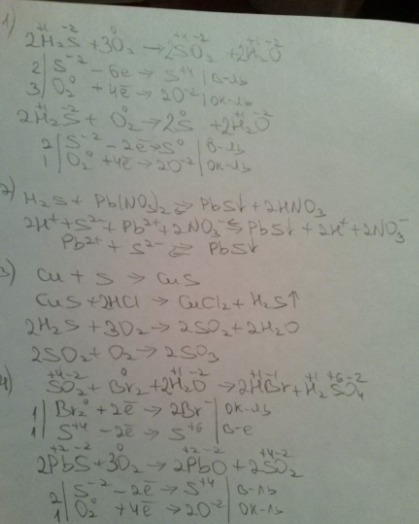 1) 2H₂⁺¹S⁻² + 3O₂⁰ → 2S⁺⁴O₂⁻² + 2H₂⁺¹O⁻²
2| S⁻² - 6ē → S⁺⁴ | в-ль
3| O₂⁰ + 4ē → 2O⁻² | ок-ль
2H₂⁺¹S⁻² + O₂⁰ → 2S⁰ + 2H₂⁺¹O⁻²
2| S⁻² - 2ē → S⁰ | в-ль
1| O₂⁰ + 4ē → 2O⁻² | ок-ль
2) H₂S + Pb(NO₃)₂ ⇌ PbS↓ + 2HNO₃
2H⁺ + S²⁻ + Pb²⁺ + 2NO₃⁻ ⇌ PbS↓ + 2H⁺ + 2NO₃⁻
Pb²⁺ + S²⁻ ⇌ PbS↓
3) Cu + S → CuS
CuS + 2HCl → CuCl₂ + H₂S↑
2H₂S + 3O₂ → 2SO₂ + 2H₂O
2SO₂ + O₂ → 2SO₃
4) S⁺⁴O₂⁻² + Br₂⁰ + 2H₂⁺¹O⁻² → 2H⁺¹Br⁻¹ + H₂⁺¹S⁺⁶O₄⁻²
1| Br₂⁰ + 2ē → 2Br⁻ | ок-ль
1| S⁺⁴ - 2ē → S⁺⁶ | в-е
2Pb⁺²S⁻² + 3O₂⁰ → 2Pb⁺²O⁻² + 2S⁺⁴O₂⁻²
2| S⁻² - 2ē → S⁺⁴ | в-ль
1| O₂⁰ + 4ē → 2O⁻² | ок-ль